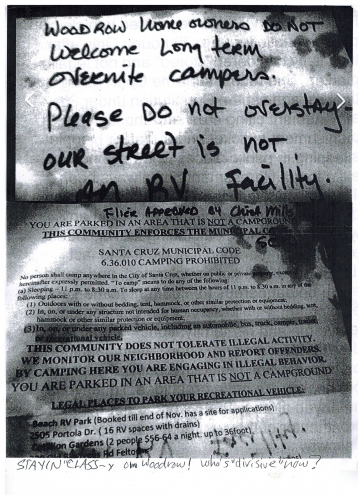 WOODROW Home owners DO NOT
Welcome Long term
overnite campers.
Please DO not overstay
our street is not
an RV Facility.
Flier APPROVED BY Chief Mills
YOU ARE PARKED IN AN AREA THAT IS NOT A CAMPGROUND
THIS COMMUNITY ENFORCES THE MUNICIPAL
SANTA CRUZ MUNICIPAL CODE
6.36.010 CAMPING PROHIBITED
No person shall camp anywhere in the City of Santa Cruz, whether on public or private property, except as
hereinafter expressly permitted. "To camp" means to do any of the following:
(a) Sleeping – 11 p.m. to 8:30 a.m. To sleep at any time between the hours of 11 p.m. to 8:30 a.m. in any of the
following places:
(1) Outdoors with or without bedding, tent, hammock, or other similar protection or equipment;
(2) In, on, or under any structure not intended for human occupancy, whether with or without bedding, tent,
hammock or other similar protection or equipment;
(3) In, on, or under any parked vehicle, including an automobile, bus, truck, camper,
or recreational vehicle.
THIS COMMUNITY DOES NOT TOLERATE ILLEGAL ACTIVITY.
WE MONITOR OUR NEIGHBORHOOD AND REPORT OFFENDERS.
BY CAMPING HERE YOU ARE ENGAGING IN ILLEGAL BEHAVIOR.
YOU ARE PARKED IN AN AREA THAT IS NOT A CAMPGROUND
LEGAL PLACES TO PARK YOUR RECREATIONAL VEHICLE:
Beach RV Park (Booked till end of Nov. has a site for applications)
2505 Portola Dr. ( 16 RV spaces with drains)
Gardens (2 people $56-64 a night. up to 36foot)
Rd Felton
STAYIN "CLASS-y on Woodrow! who's "divisive" now?